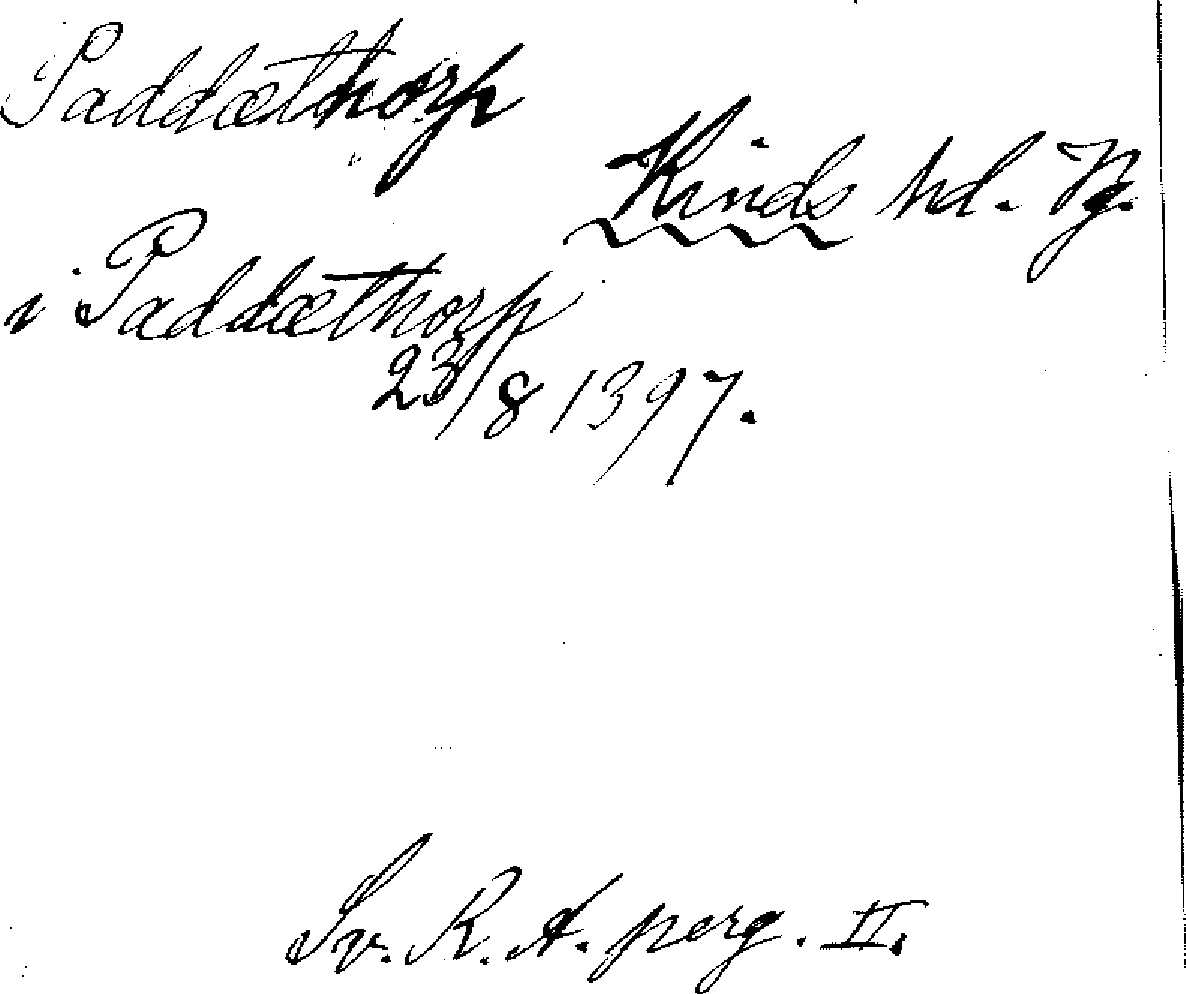 Paddæthorp
Kinds hd. Vg.
i Paddæthorp
23/8 1397.
Sv. R. A. perg. II.